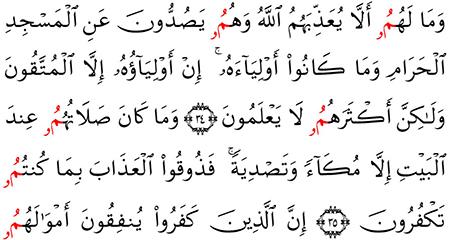 وَمَا لَهُمُۥ أَلَّا يُعَذِّبَهُمُ ٱللَّهُ وَهُمُۥ يَصُدُّونَ عَنِ ٱلْمَسْجِدِ
ٱلْحَرَامِ وَمَا كَانُوٓا۟ أَوْلِيَآءَهُۥٓ ۚ إِنْ أَوْلِيَآؤُهُۥٓ إِلَّا ٱلْمُتَّقُونَ
وَلَٰكِنَّ أَكْثَرَهُمُۥ لَا يَعْلَمُونَ ۝٣٤ وَمَا كَانَ صَلَاتُهُمُۥ عِندَ
ٱلْبَيْتِ إِلَّا مُكَآءً وَتَصْدِيَةً ۚ فَذُوقُوا۟ ٱلْعَذَابَ بِمَا كُنتُمُۥ
تَكْفُرُونَ ۝٣٥ إِنَّ ٱلَّذِينَ كَفَرُوا۟ يُنفِقُونَ أَمْوَٰلَهُمُۥ